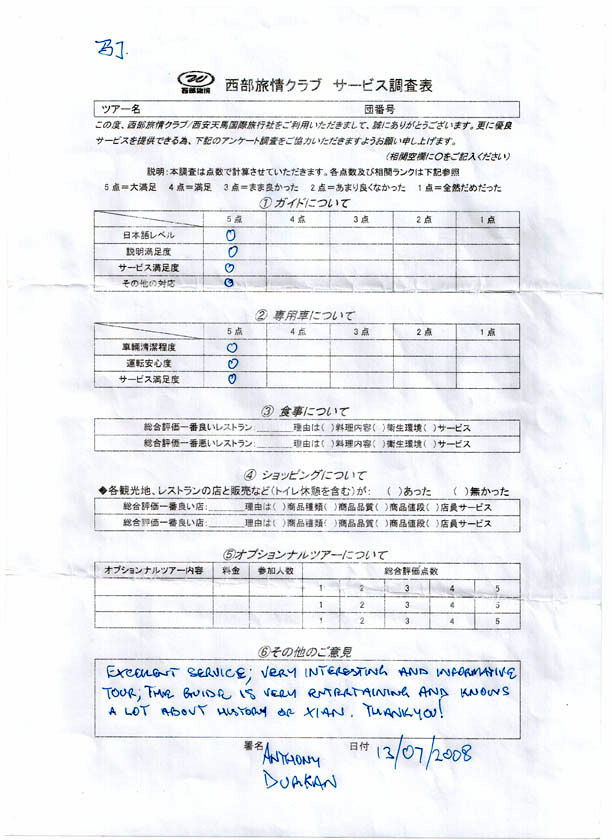 BJ.
西部旅情 西部旅情クラブ サービス調査表
ツアー名 団番号
この度、西部旅情クラブ/西安天馬国際旅行社をご利用いただきまして、誠にありがとうございます。更に優良
サービスを提供できる為、下記のアンケート調査をご協力いただきますようお願い申し上げます。
(相関空欄に○をご記入ください)
説明:本調査は点数で計算させていただきます。各点数及び相関ランクは下記参照
5点=大満足 4点=満足 3点=まま良かった 2点=あまり良くなかった 1点=全然だめだった
①ガイドについて
5点 4点 3点 2点 1点
日本語レベル ○
説明満足度 ○
サービス満足度 ○
その他の対応 ○
② 専用車について
5点 4点 3点 2点 1点
車輌清潔程度 ○
運転安心度 ○
サービス満足度 ○
③ 食事について
総合評価一番良いレストラン:______ 理由は( )料理内容( )衛生環境( )サービス
総合評価一番悪いレストラン:______ 理由は( )料理内容( )衛生環境( )サービス
④ ショッピングについて
◆各観光地、レストランの店と販売など(トイレ休憩を含む)が: ( )あった ( )無かった
総合評価一番良い店:______ 理由は( )商品種類( )商品品質( )商品値段( )店員サービス
総合評価一番良い店:______ 理由は( )商品種類( )商品品質( )商品値段( )店員サービス
⑤オプションナルツアーについて
オプションナルツアー内容 料金 参加人数 総合評価点数
1 2 3 4 5
1 2 3 4 5
1 2 3 4 5
⑥その他のご意見
EXCELLENT SERVICE; VERY INTERESTING AND INFORMATIVE
TOUR; THE GUIDE IS VERY ENTERTAINING AND KNOWS
A LOT ABOUT HISTORY OF XIAN. THANKYOU!
署名 ANTHONY 日付 13/07/2008
DURKAN